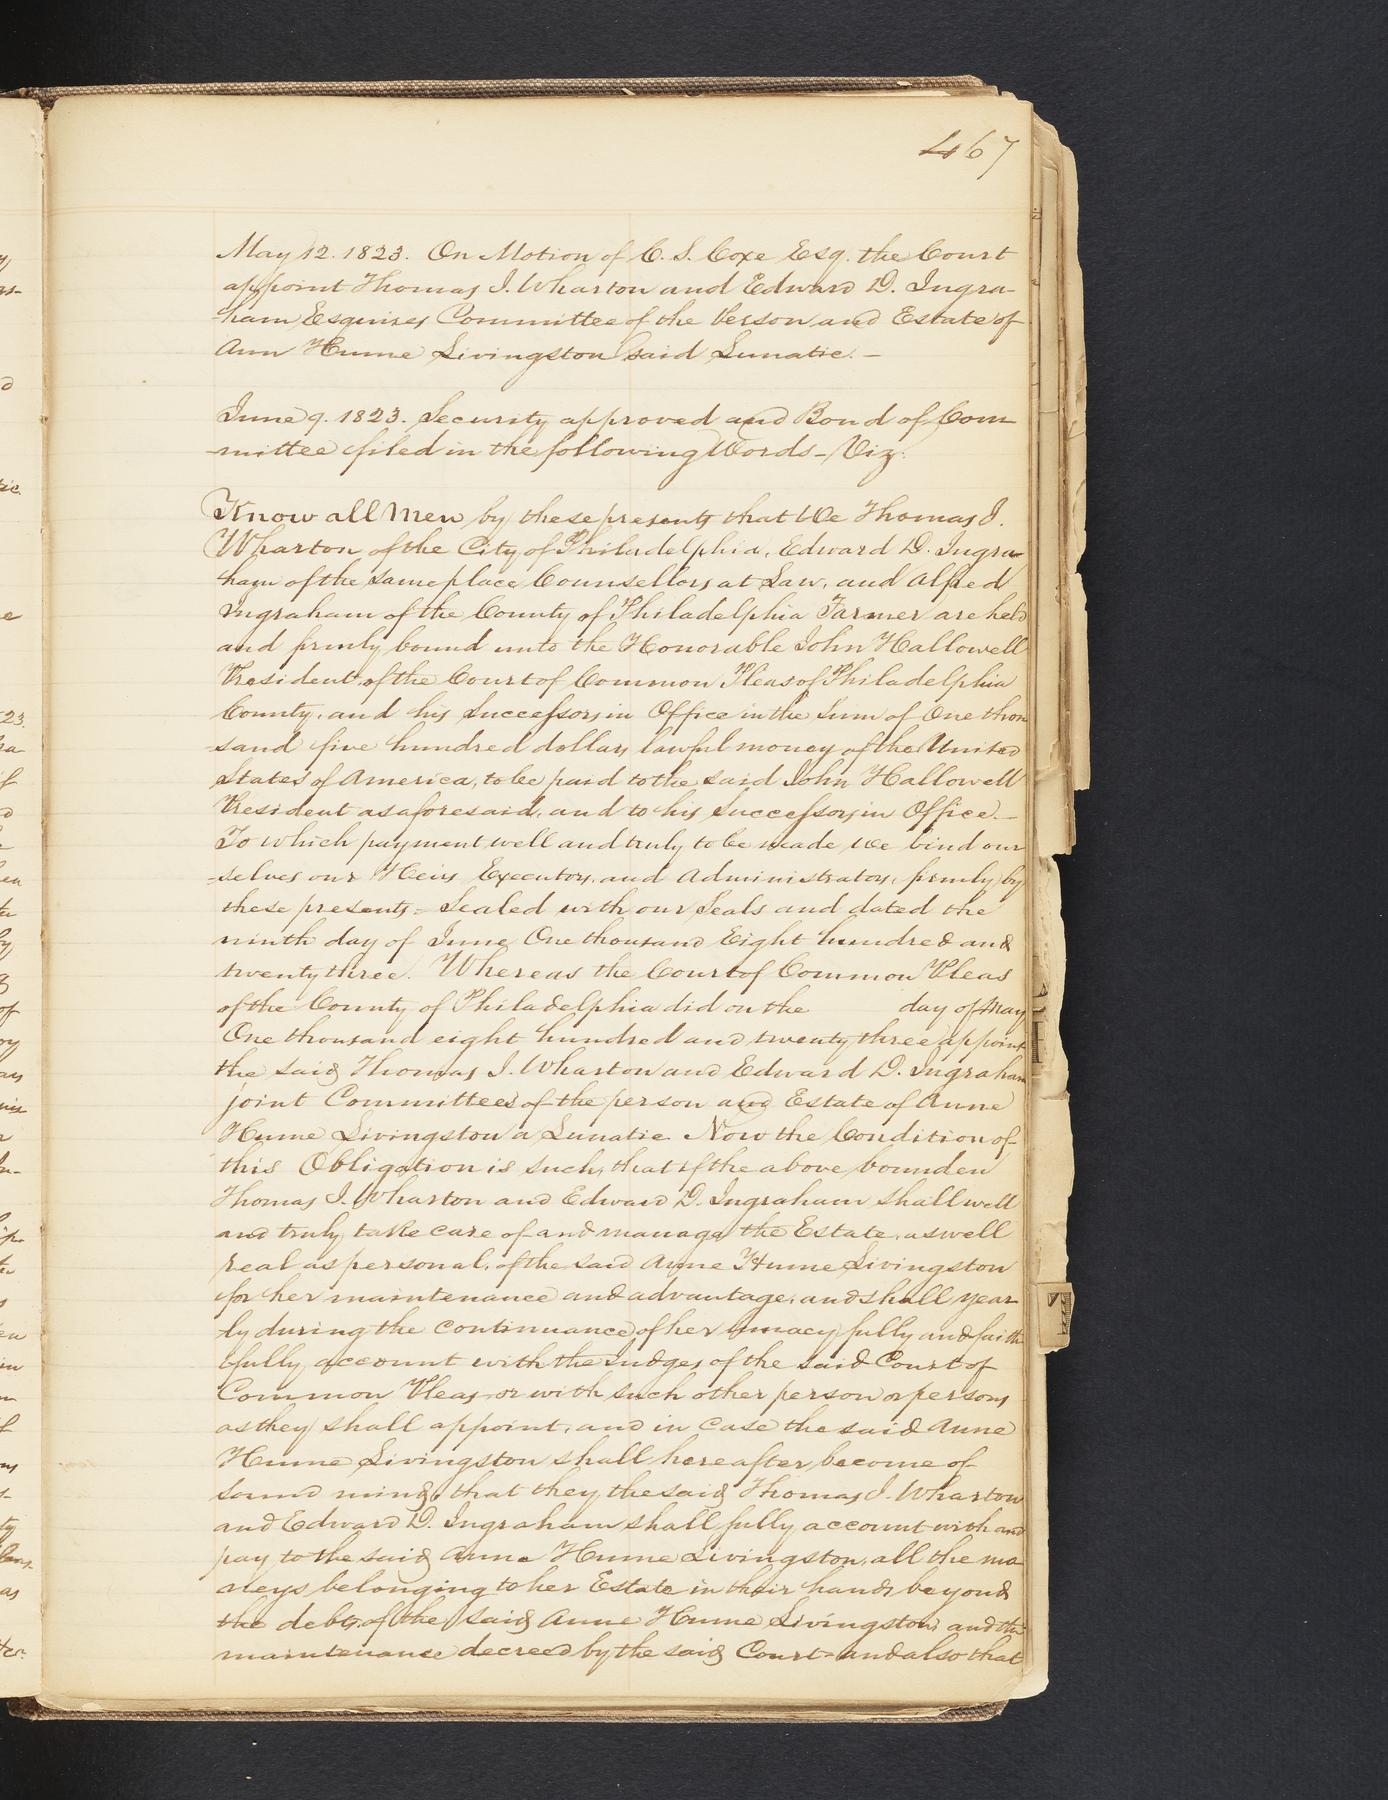 467
May 12. 1823. On Motion of C. S. Coxe Esq. the Court
appoint Thomas I. Wharton and Edward D. Ingra-
ham Esquires Committee of the Person and Estate of
Ann Hume Livingston said Lunatic. -
June 9. 1823. Security approved and Bond of Com
-mittee filed in the following Words - Viz.
Know all Men by these presents that We Thomas I.
Wharton of the City of Philadelphia, Edward D. Ingra-
ham of the same place Counsellors at Law, and Alfred
Ingraham of the County of Philadelphia Farmer are held
and firmly bound unto the Honorable John Hallowell
President of the Court of Common Pleas of Philadelphia
County, and his Successors in Office in the Sum of One thou
-sand five hundred dollars lawful money of the United
States of America, to be paid to the said John Hallowell
President as aforesaid, and to his Successors in Office. -
To which payment well and truly to be made we bind our
=selves our Heirs Executors, and Administrators, firmly by
these presents = Sealed with our Seals and dated the
ninth day of June One thousand Eight hundred and
twenty three. Whereas the Court of Common Pleas
of the County of Philadelphia did on the day of May
One thousand eight hundred and twenty three appoint
the said Thomas I. Wharton and Edward D. Ingraham
joint Committees of the person and Estate of Anne
Hume Livingston a Lunatic. Now the Condition of
this Obligation is such, that if the above bounden
Thomas I. Wharton and Edward D. Ingraham shall well
and truly take care of and manage the Estate, as well
real as personal, of the said Anne Hume Livingston
for her maintenance and advantage, and shall year
ly during the continuance of her lunacy fully and faith
fully account with the Judges of the said Court of
Common Pleas or with such other person or persons
as they shall appoint, and in case the said Anne
Hume Livingston shall hereafter become of
sound mind, that they the said Thomas I. Wharton
and Edward D. Ingraham shall fully account with and
pay to the said Anne Hume Livingston, all the mo
neys belonging to her Estate in their hands beyond
the debts of the said Anne Hume Livingston, and the
maintenance decreed by the said Court - and also that